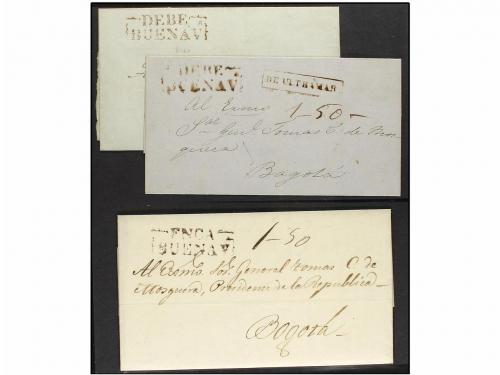 DEBE
BUENAV
DEBE
BUENAV
DE ULTRAMAR
Al Exmo 1-50-
Sor Genl Tomas C. de Mos-
quera
Bogotá
ENCA
BUENAV
1-50
Al Exsmo. Sor. General Tomas C. de
Mosquera, Presidente de la Republica-
Bogotá-